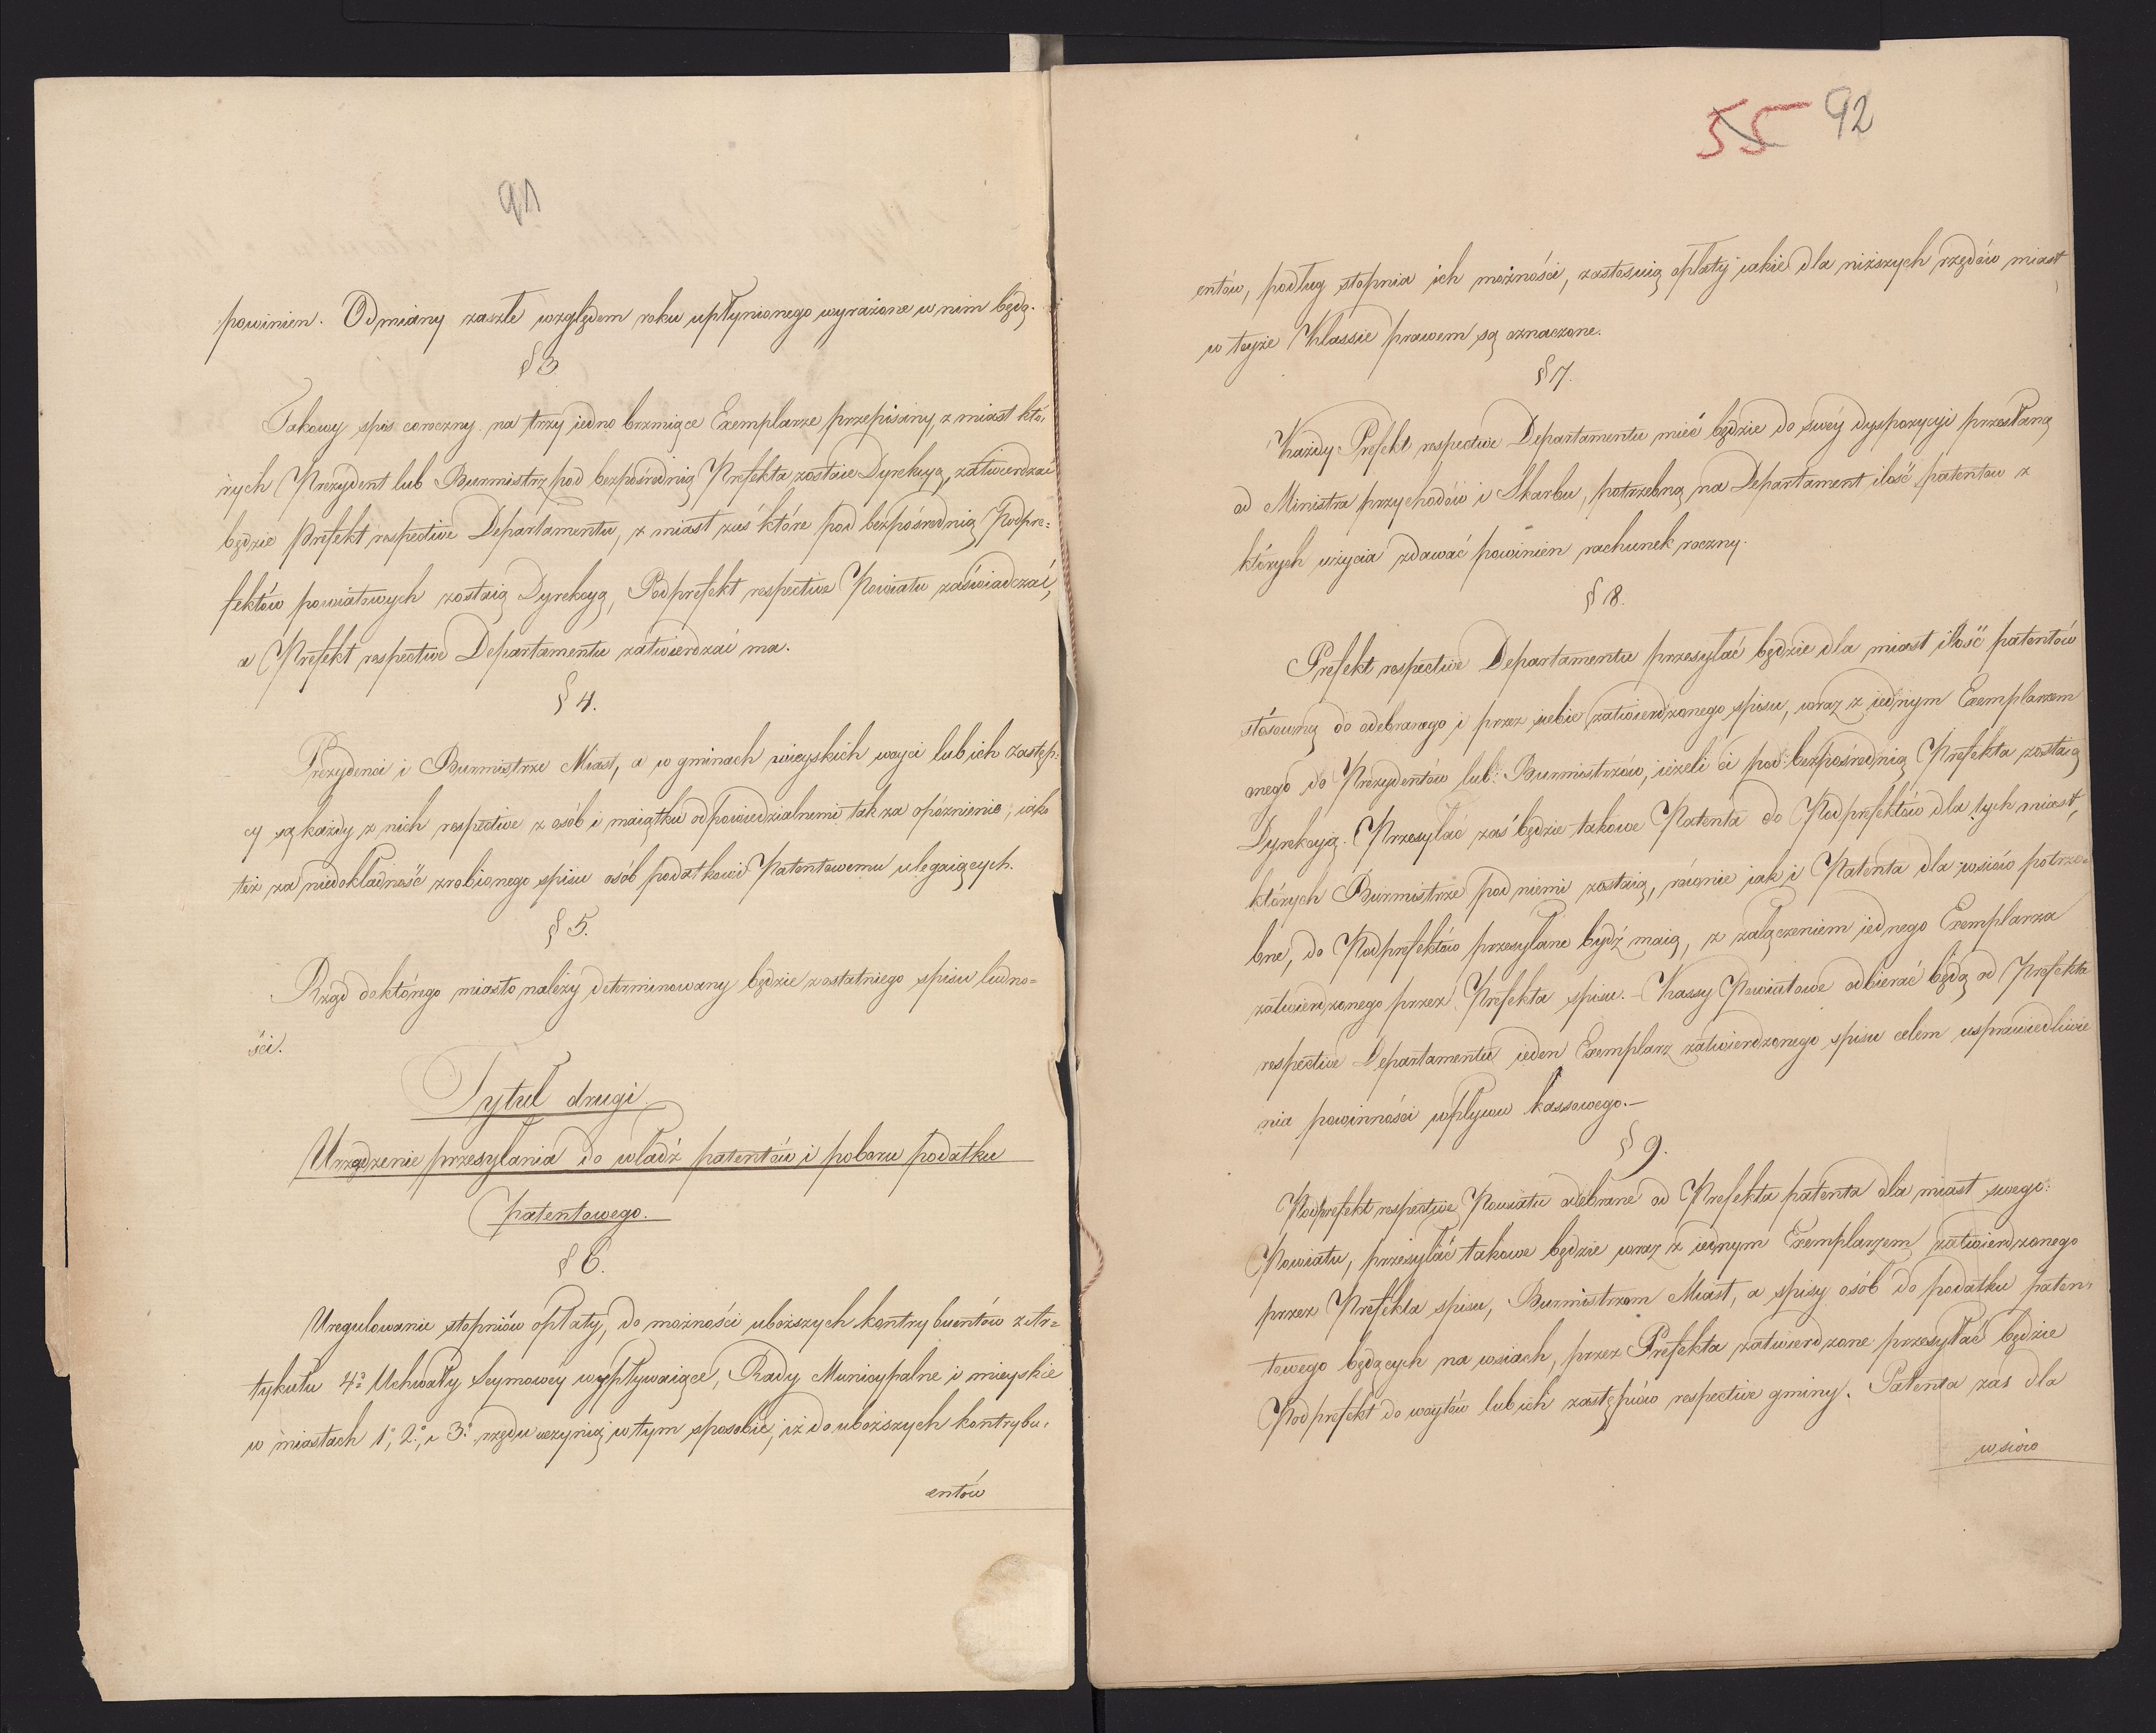 91
powinien. Odmiany zaszłe względem roku upłynionego wyrażone w nim będą.
§ 3
Takowy spis coroczny na trzy iedno brzmiące Exemplarze przepisany, z miast któ-
rych Prezydent lub Burmistrz pod bezpośrednią Prefekta zostaie Dyrekcyą, zatwierdzać
będzie Prefekt respective Departamentu, z miast zaś które pod bezpośrednią Podpre-
fektów powiatowych zostaią Dyrekcyą, Podprefekt respective Powiatu zaświadczać,
a Prefekt respective Departamentu zatwierdzać ma.
§ 4.
Prezydenci i Burmistrze Miast, a w gminach wieyskich woyci lub ich zastęp-
cy są każdy z nich respective z osób i maiątku odpowiedzialnemi tak za opóznienie, iako
też za niedokładność zrobionego spisu osób podatkowi Patentowemu ulegaiących.
§ 5.
Rząd do którego miasto należy determinowany będzie z ostatniego spisu ludno-
ści.
Tytuł drugi
Urządzenie przesyłania do władz patentów i poboru podatku
Patentowego.
§ 6.
Uregulowanie stopniów opłaty, do możności uboższych kontrybuentów z Ar-
tykułu 4º Uchwały Seymowey wypływaiące, Rady Municypalne i mieyskie
w miastach 1º, 2º, i 3º rzędu uczynią w tym sposobie, iż do uboższych kontrybu-
entów
55 92
entów, podług stopnia ich możności, zastosuią opłaty iakie dla niższych rzędów miast
w teyże Klassie prawem są oznaczone.
§ 7.
Każdy Prefekt respective Departamentu mieć będzie do swéy dyspozycyi przesłaną
od Ministra przychodów i Skarbu, potrzebną na Departament ilość patentów z
których użycia zdawać powinien rachunek roczny.
§ 8.
Prefekt respective Departamentu przesyłać będzie dla miast ilość patentów
stósowną do odebranego i przez siebie zatwierdzonego spisu, wraz z iednym Exemplarzem
onego do Prezydentów lub Burmistrzów, ieżeli ci pod bezpośrednią Prefekta zostaią
Dyrekcyą. Przesyłać zaś będzie takowe Patenta do Podprefektów dla tych miast,
których Burmistrze pod niemi zostaią, równie iak i Patenta dla wsiów potrze-
bne, do Podprefektów przesyłane bydź maią, z załączeniem iednego Exemplarza
zatwierdzonego przez Prefekta spisu. – Kassy Powiatowe odbierać będą od Prefekta
respective Departamentu ieden Exemplarz zatwierdzonego spisu celem usprawiedliwie
nia powinności wpływu kassowego. –
§ 9.
Podprefekt respective Powiatu odebrane od Prefekta patenta dla miast swego
Powiatu, przesyłać takowe będzie wraz z iednym Exemplarzem zatwierdzonego
przez Prefekta spisu, Burmistrzom Miast, a spisy osób do podatku paten-
towego będących na wsiach, przez Prefekta zatwierdzone przesyłać będzie
Podprefekt do woytów lub ich zastępców respective gminy. Patenta zas dla
wsiów